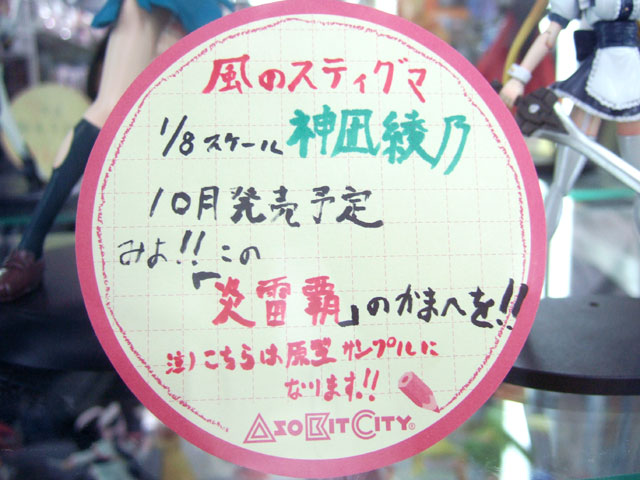 風のスティグマ
1/8スケール 神凪綾乃
10月発売予定
みよ!!この
「炎雷覇」のかまへを!!
注)こちらは原型サンプルに
なります!!
ASOBITCITY®